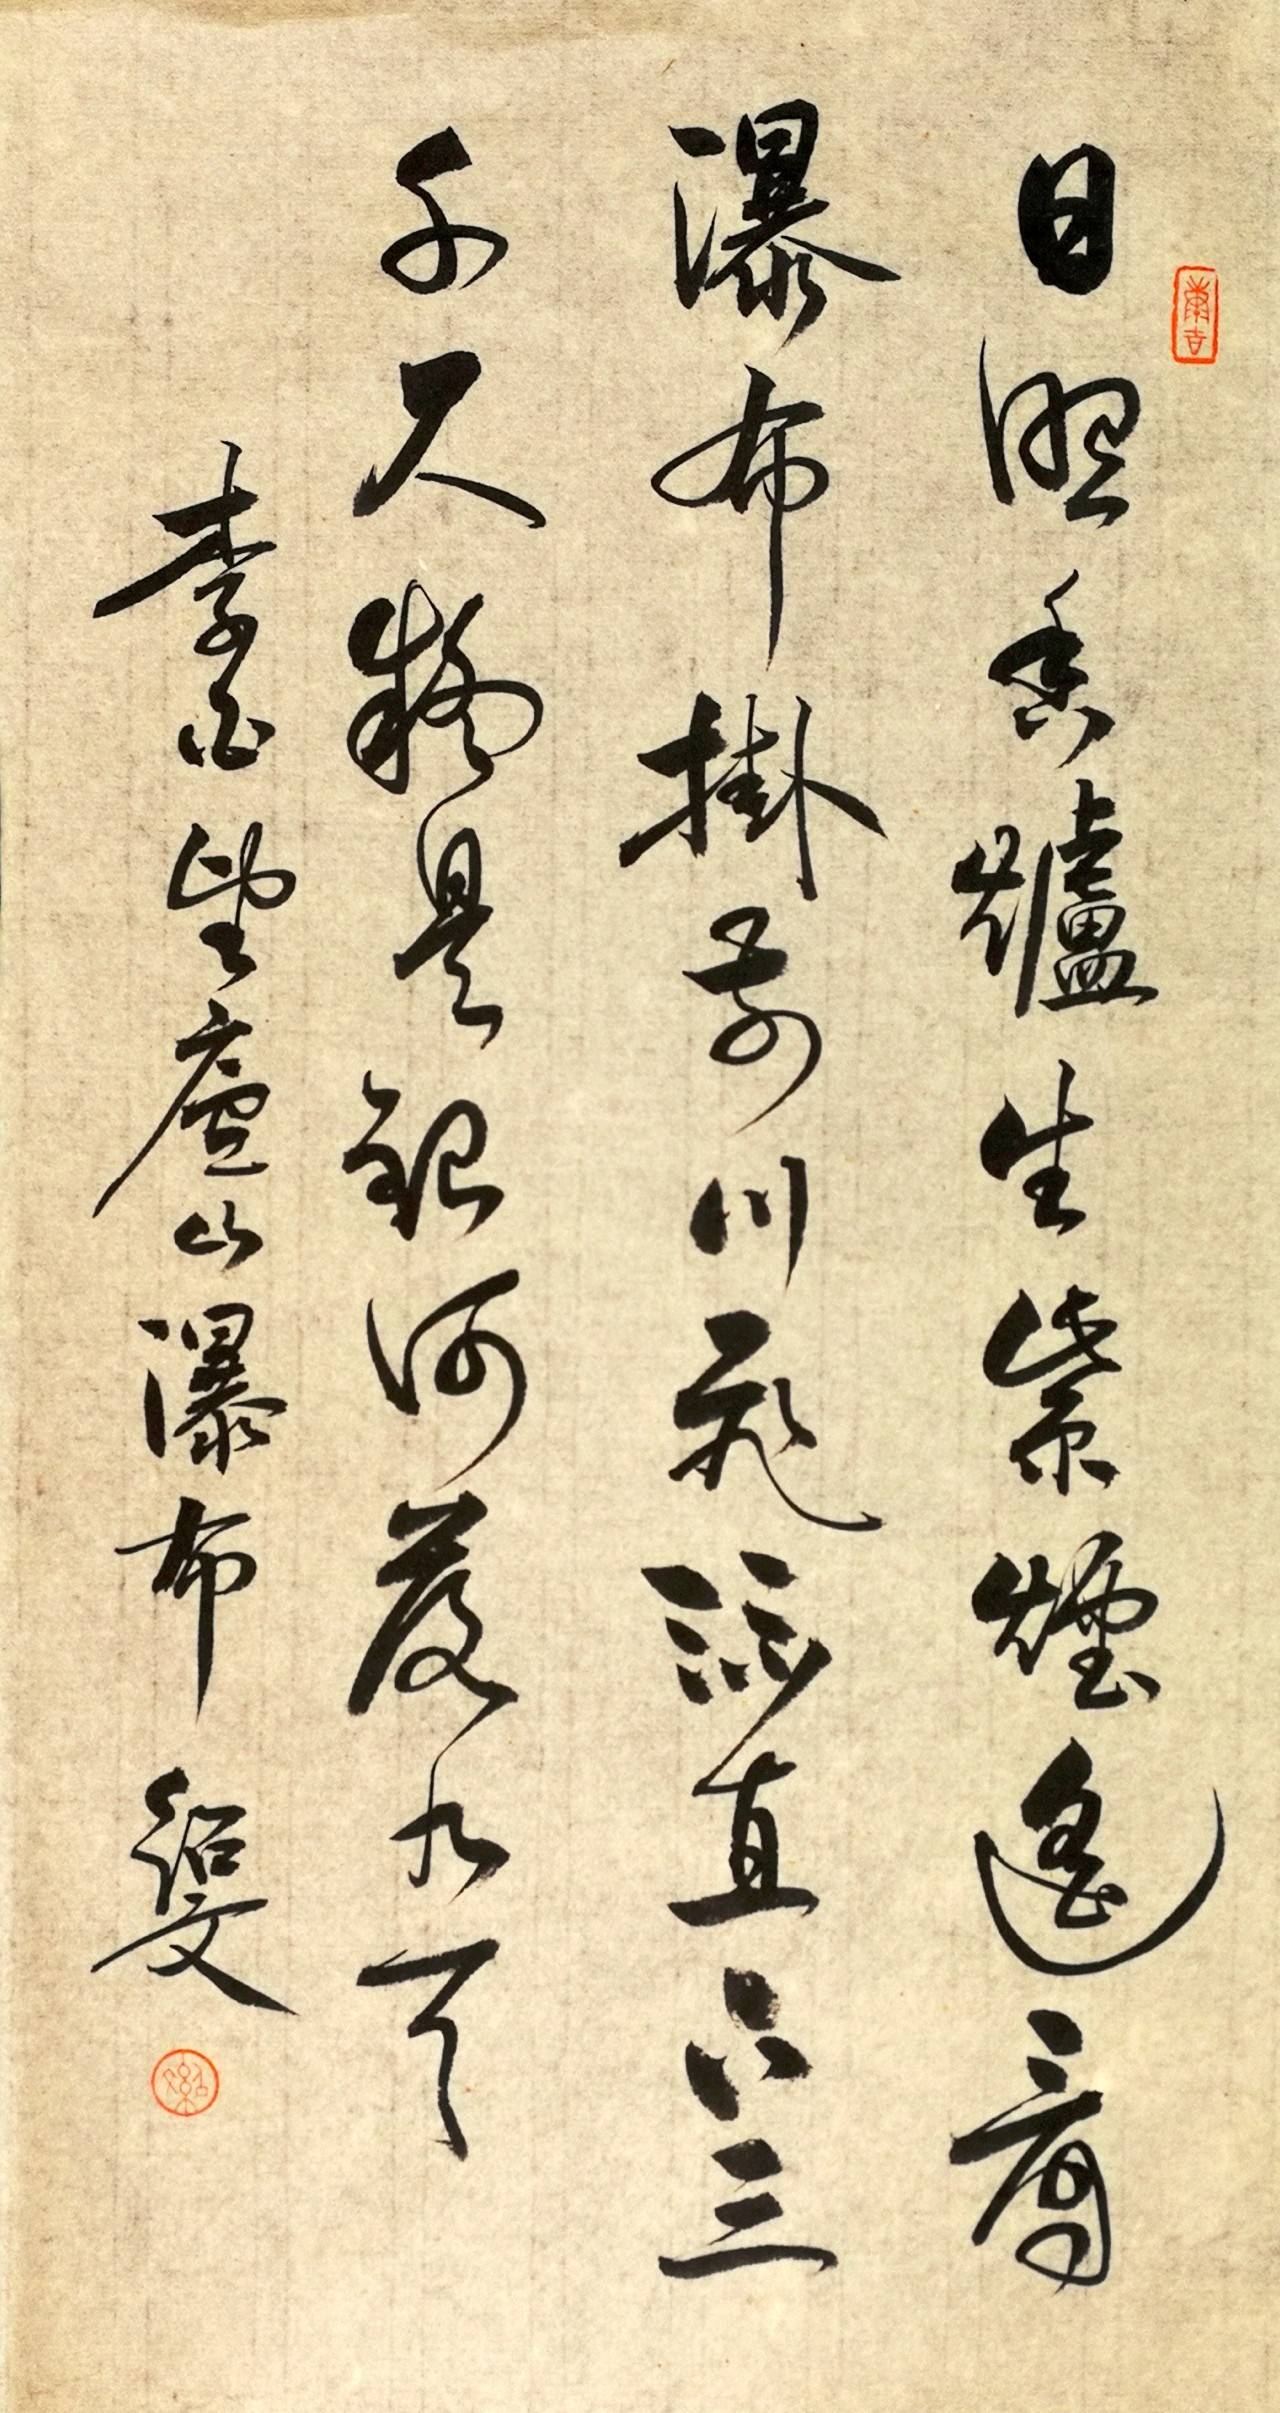 日照香爐生紫煙遙看
瀑布掛前川飛流直下三
千尺疑是銀河落九天
李白望廬山瀑布 紹文